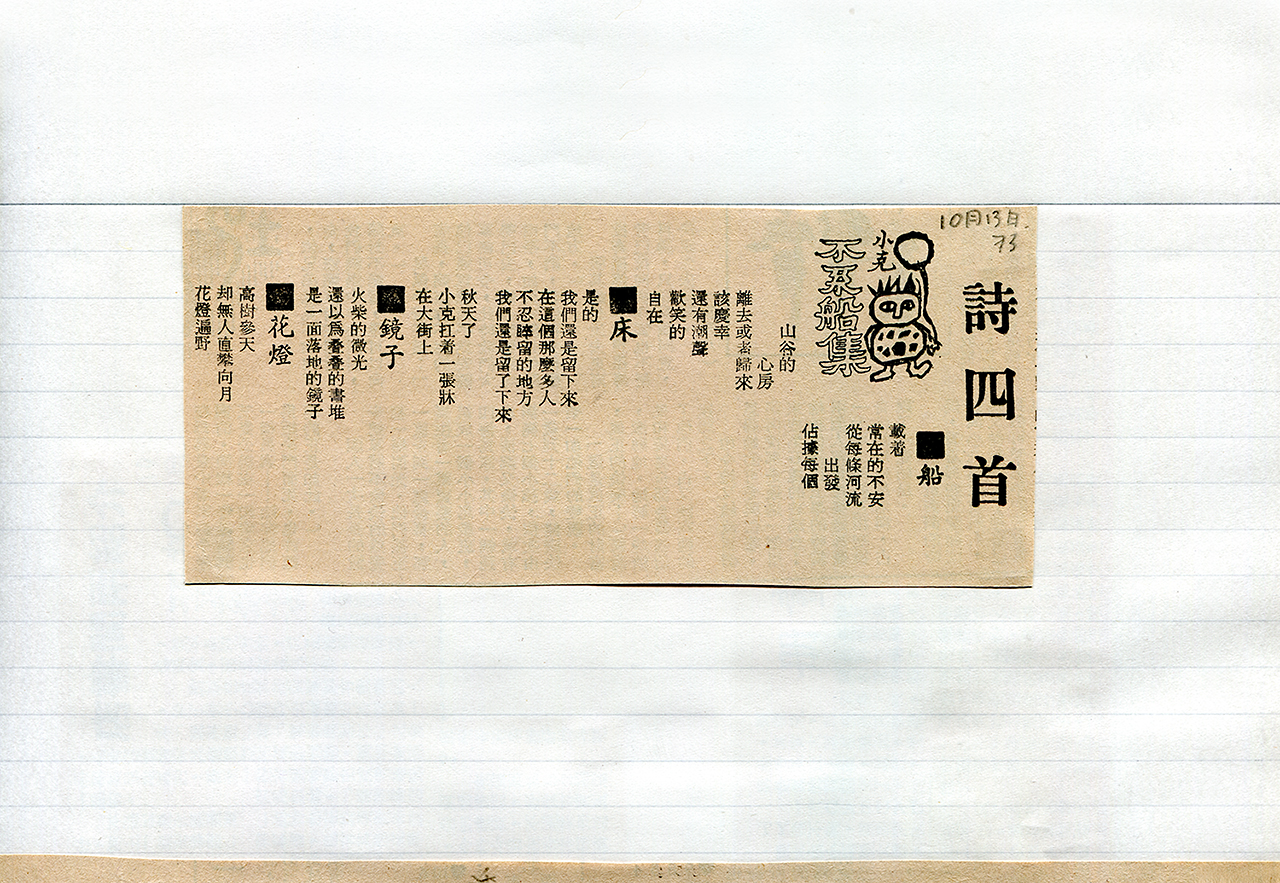 10月13日.
73
詩四首
小克
不繫船集
■船
載着
常在的不安
從每條河流
出發
佔據每個
山谷的
心房
離去或者歸來
該慶幸
還有潮聲
歡笑的
自在
■床
是的
我們還是留下來
在這個那麽多人
不忍睟留的地方
我們還是留了下來
秋天了
小克扛着一張牀
在大街上
■鏡子
火柴的微光
還以爲叠叠的書堆
是一面落地的鏡子
■花燈
高樹參天
却無人直攀向月
花燈遍野